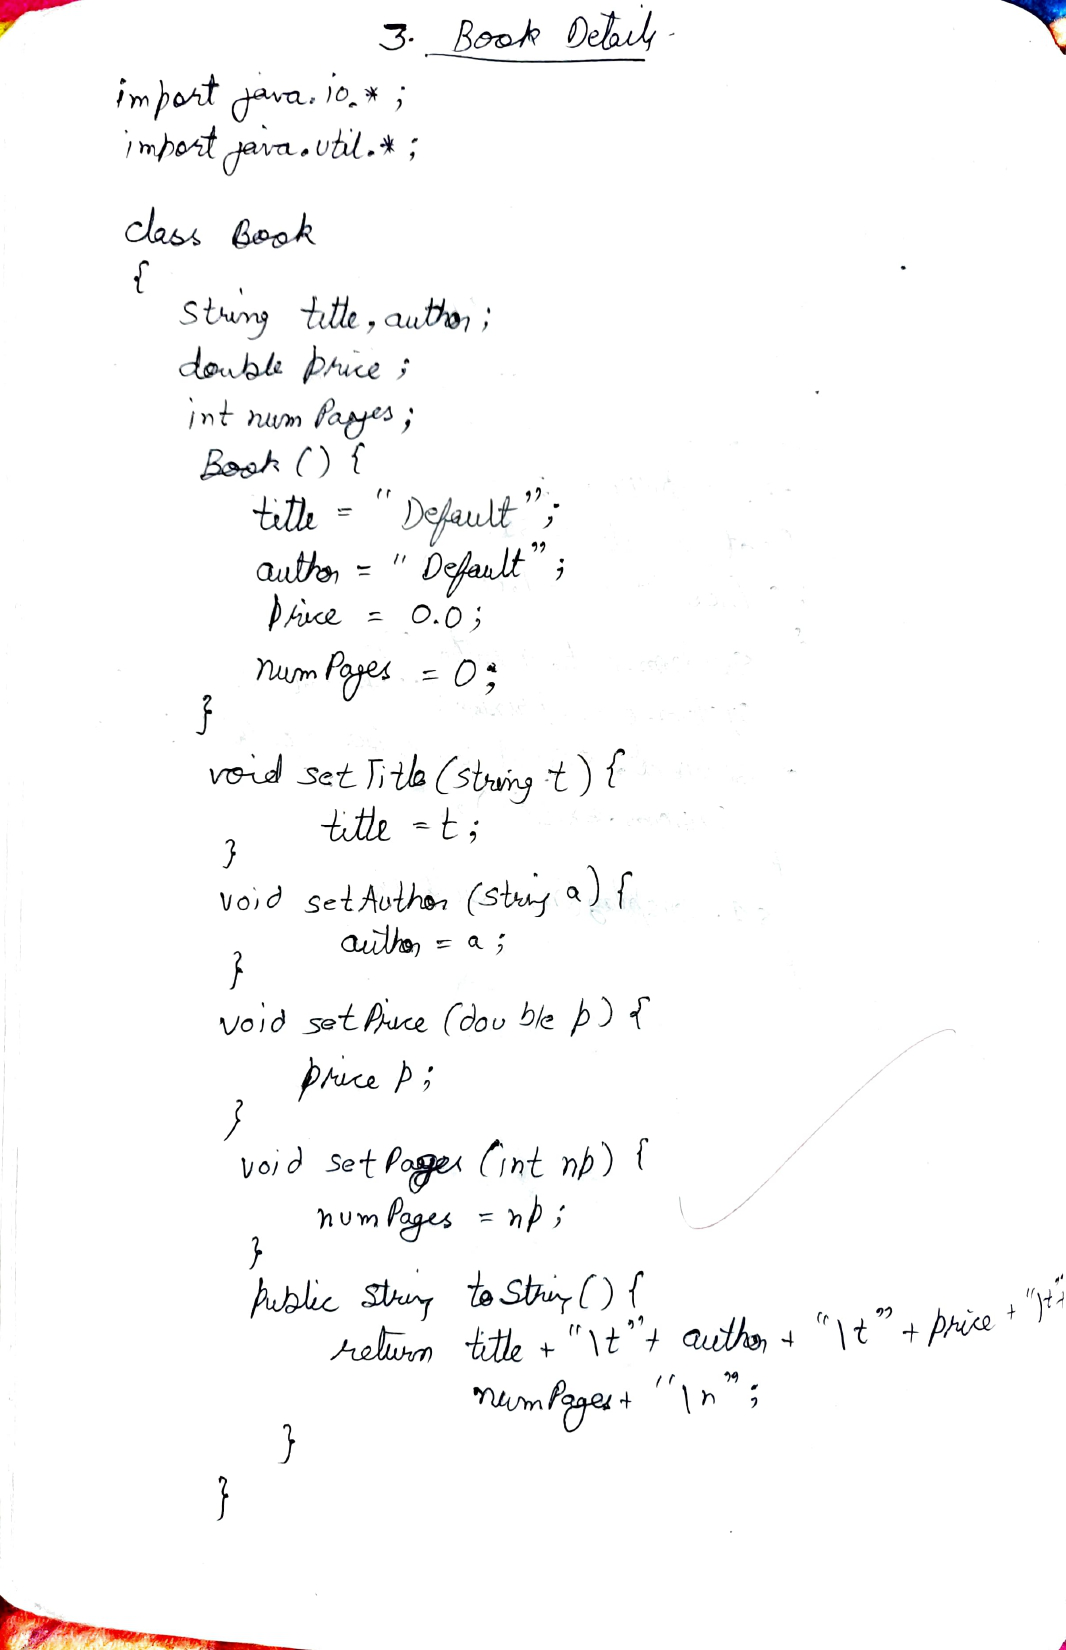 3. Book Details.
import java.io.*;
import java.util.*;
class Book
{
String title, author;
double price;
int numPages;
Book () {
title = "Default";
author = "Default";
price = 0.0;
numPages = 0;
}
void setTitle (string t) {
title = t;
}
void setAuthor (string a) {
author = a;
}
void setPrice (double p) {
price p;
}
void setPages (int np) {
numPages = np;
}
public string toString () {
return title + "\t" + author + "\t" + price + "\t" +
numPages + "\n";
}
}